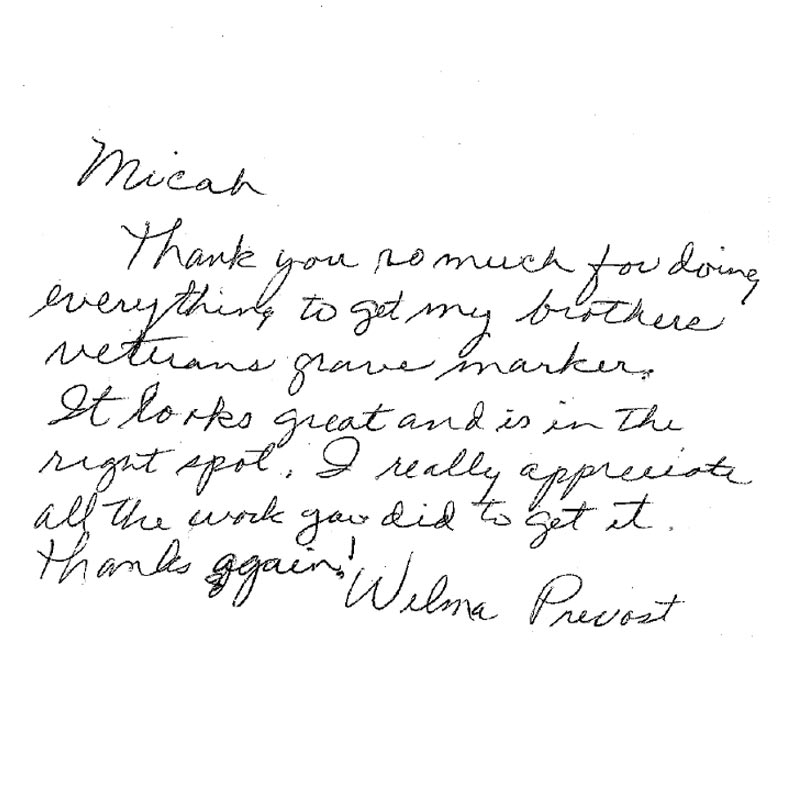 Micah
Thank you so much for doing
everything to get my brothers
veterans grave marker.
It looks great and is in the
right spot. I really appreciate
all the work you did to get it.
Thanks again!
Wilma Prevost